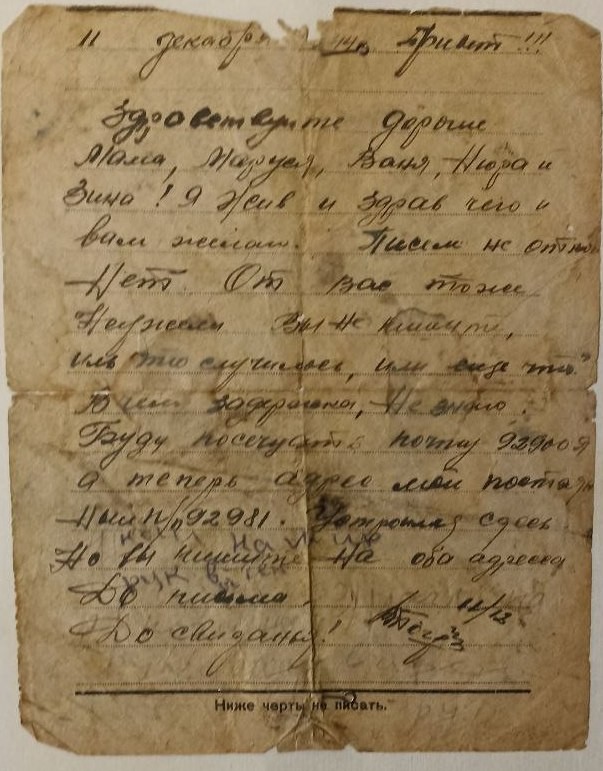 11 декабря 44 г. Привет!!!
Здравствуйте дорогие
Мама, Маруся, Ваня, Нюра и
Зина! Я жив и здрав чего и
вам желаю. Писем не от
Нет. От вас тоже
Неужели Вы не пишите,
иль что случилось, или еще что.
В чем задержка, не знаю.
Буду посещать почту 92900
а теперь адрес мой постоян
ный п/п 92981. Устроился здесь
Но вы пишите на оба адреса
До письма
До свиданья! 11/12
Ниже черты не писать.